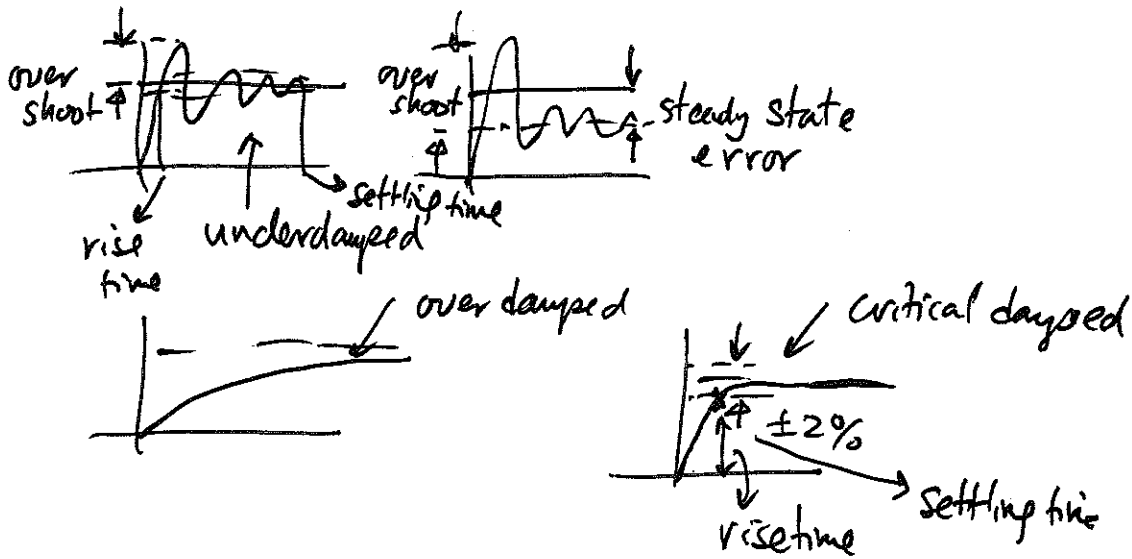 over
shoot
over
shoot
steady state
error
settling time
rise
time
underdamped
over damped
critical damped
±2%
settling time
risetime